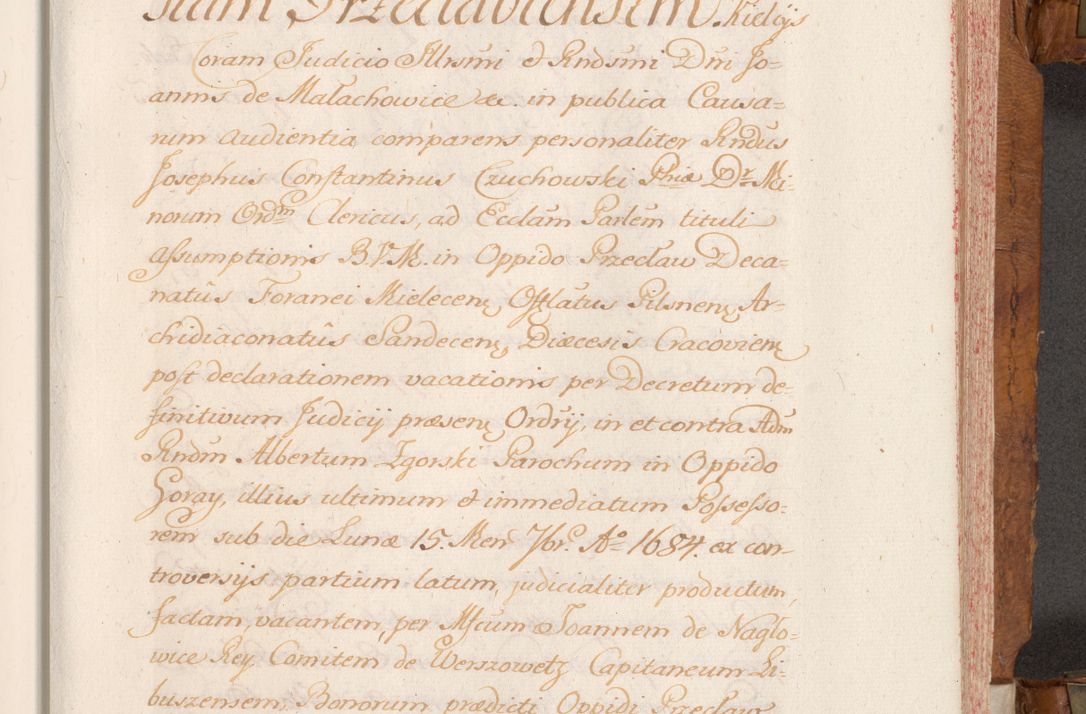 siam Przeclaviensem. Kielcijs
Coram Judicio Illrsmi & Rndsmi Dni Jo-
annis de Małachowice &c. in publica Causa-
rum audientia comparens personaliter Rndus
Josephus Constantinus Czuchowski Phiæ Dr. Mi-
norum Ordm Clericus, ad Ecclam Parlem tituli
Assumptionis B.V.M. in Oppido Przecław Deca-
natûs Foranei Mielecen, Offlatus Pilsnen, Ar-
chidiaconatûs Sandecen, Diæcesis Cracovien
post declarationem vacationis per Decretum de-
finitivum Judicij præsen, Ordrij, in et contra Adm
Rndm Albertum Zgorski Parochum in Oppido
Goray, illius ultimum & immediatum Possesso-
rem sub die Lunæ 15. Men 7br. Ao 1684 ex con-
troversijs partium latum, judicialiter productum,
factam, vacantem, per Mfcum Joannem de Nagło-
wice Rey Comitem de Werszowetz Capitaneum Li-
buszensem, Bonorum prædicti Oppidi Przecław